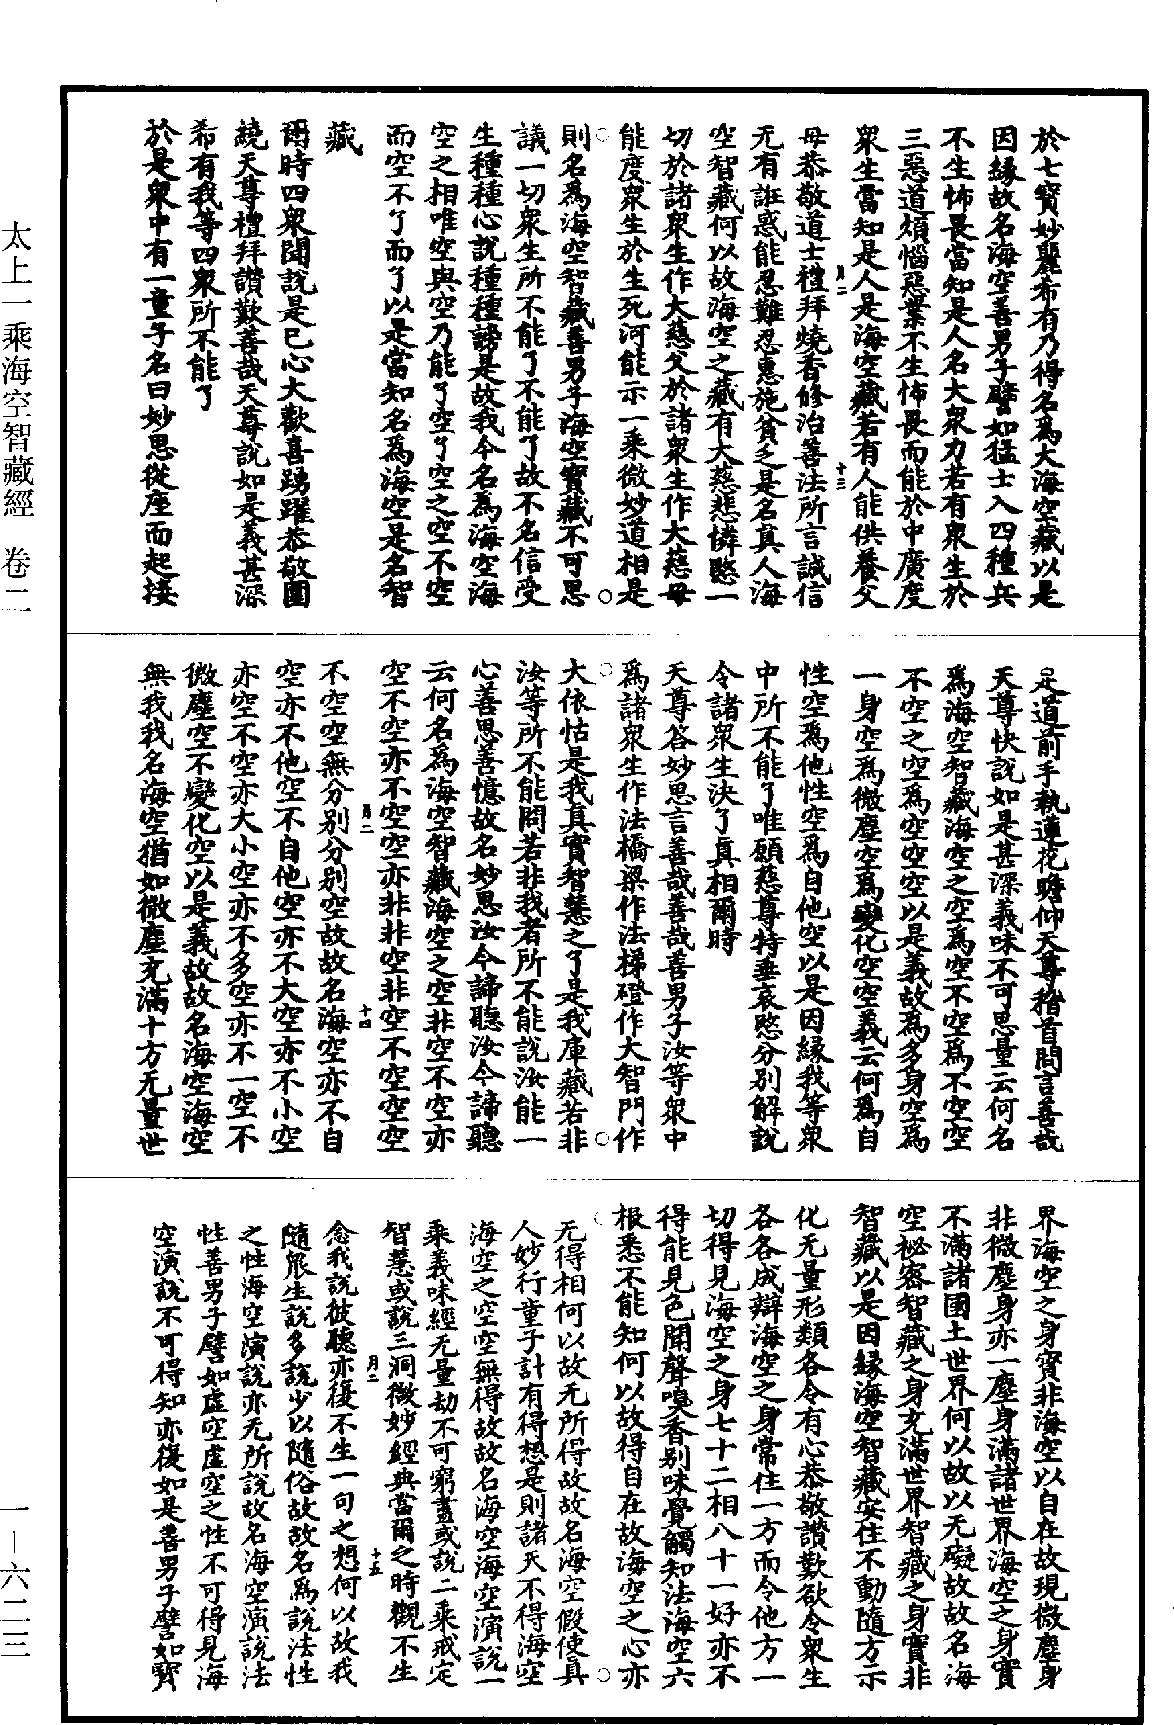 於七寶妙麗希有乃得名爲大海空藏以是
因緣故名海空善男子譬如猛士入四種兵
不生怖畏當知是人名大衆力若有衆生於
三惡道煩惱惡業不生怖畏而能於中廣度
衆生當知是人是海空藏若有人能供養父
母恭敬道士禮拜燒香修治善法所言誠信
无有誑惑能忍難忍惠施貧乏是名真人海
空智藏何以故海空之藏有大慈悲憐愍一
切於諸衆生作大慈父於諸衆生作大慈母
能度衆生於生死河能示一乘微妙道相是
則名爲海空智藏善男子海空寶藏不可思
議一切衆生所不能了不能了故不名信受
生種種心說種種謗是故我今名爲海空海
空之相唯空與空乃能了空了空之空不空
而空不了而了以是當知名爲海空是名智
藏
爾時四衆聞說是已心大歡喜踴躍恭敬圍
繞天尊禮拜讚歎善哉天尊說如是義甚深
希有我等四衆所不能了
於是衆中有一童子名曰妙思從座而起接
足道前手執蓮花瞻仰天尊稽首問言善哉
天尊快說如是甚深義味不可思量云何名
爲海空智藏海空之空爲空不空爲不空空
不空之空爲空空空以是義故爲多身空爲
一身空爲微塵空爲變化空空義云何爲自
性空爲他性空爲自他空以是因緣我等衆
中所不能了唯願慈尊特垂哀愍分別解說
令諸衆生決了真相爾時
天尊答妙思言善哉善哉善男子汝等衆中
爲諸衆生作法橋梁作法梯磴作大智門作
大依怙是我真實智慧之了是我庫藏若非
汝等所不能問若非我者所不能說汝能一
心善思善憶故名妙思汝今諦聽汝今諦聽
云何名爲海空智藏海空之空非空不空亦
空不空亦不空空亦非非空非空不空空空
不空空無分別分別空故故名海空亦不自
空亦不他空不自他空亦不大空亦不小空
亦空不空亦大小空亦不多空亦不一空不
微塵空不變化空以是義故故名海空海空
無我我名海空猶如微塵充滿十方无量世
界海空之身實非海空以自在故現微塵身
非微塵身亦一塵身滿諸世界海空之身實
不滿諸國土世界何以故以无礙故故名海
空祕密智藏之身充滿世界智藏之身實非
智藏以是因緣海空智藏安住不動隨方示
化无量形類各令有心恭敬讚歎欲令衆生
各各成辯海空之身常住一方而令他方一
切得見海空之身七十二相八十一好亦不
得能見色聞聲嗅香別味覺觸知法海空六
根悉不能知何以故得自在故海空之心亦
无得相何以故无所得故故名海空假使真
人妙行童子計有得想是則諸天不得海空
海空之空空無得故故名海空海空演說一
乘義味經无量劫不可窮盡或說二乘戒定
智慧或說三洞微妙經典當爾之時觀不生
念我說彼聽亦復不生一句之想何以故我
隨衆生說多說少以隨俗故故名爲說法性
之性海空演說亦无所說故名海空演說法
性善男子譬如虛空虛空之性不可得見海
空演說不可得知亦復如是善男子譬如寶
月二
十三
月二
十四
月二
十五
太上一乘海空智藏經　卷二
一—六二三